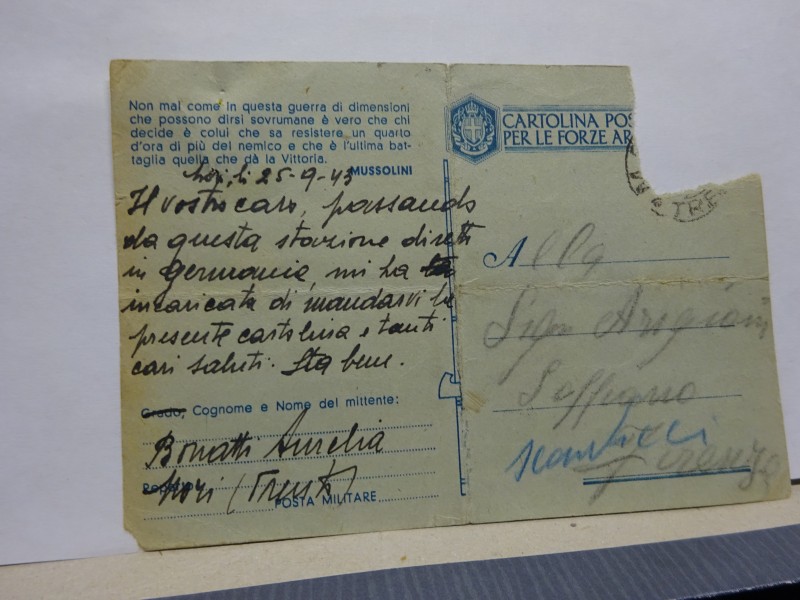 Non mai come in questa guerra di dimensioni
che possono dirsi sovrumane è vero che chi
decide è colui che sa resistere un quarto
d'ora di più del nemico e che è l'ultima bat-
taglia quella che dà la Vittoria.
MUSSOLINI
Mori, li 25-9-43
Il vostro caro, passando
da questa stazione diretti
in germania, mi ha
incaricata di mandarvi la
presente cartolina e tanti
cari saluti. Sta bene.
Grado, Cognome e Nome del mittente:
Bonatti Aurelia
Mori (Trento)
POSTA MILITARE
CARTOLINA POS
PER LE FORZE AR
TRE
Alla
Sign
Soffiano
Scandicci
Firenze